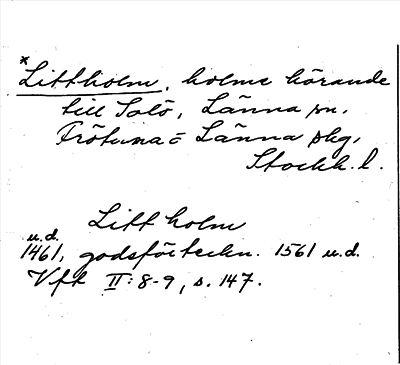 *Littholm, holme hörande
till Solö, Länna sn,
Frötuna o Länna skg,
Stockh. l.
Litt holm
u.d.
1461, godsförteckn. 1561 u.d.
Vft II: 8-9, s. 147.